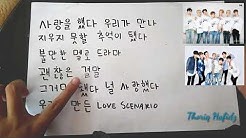 사랑을 했다 우리가 만나
지우지 못할 추억이 됐다
볼만한 멜로드라마
괜찮은 결말
그거면 됐다 널 사랑했다
만든 LOVE SCENARIO
Thoriq Hafidz